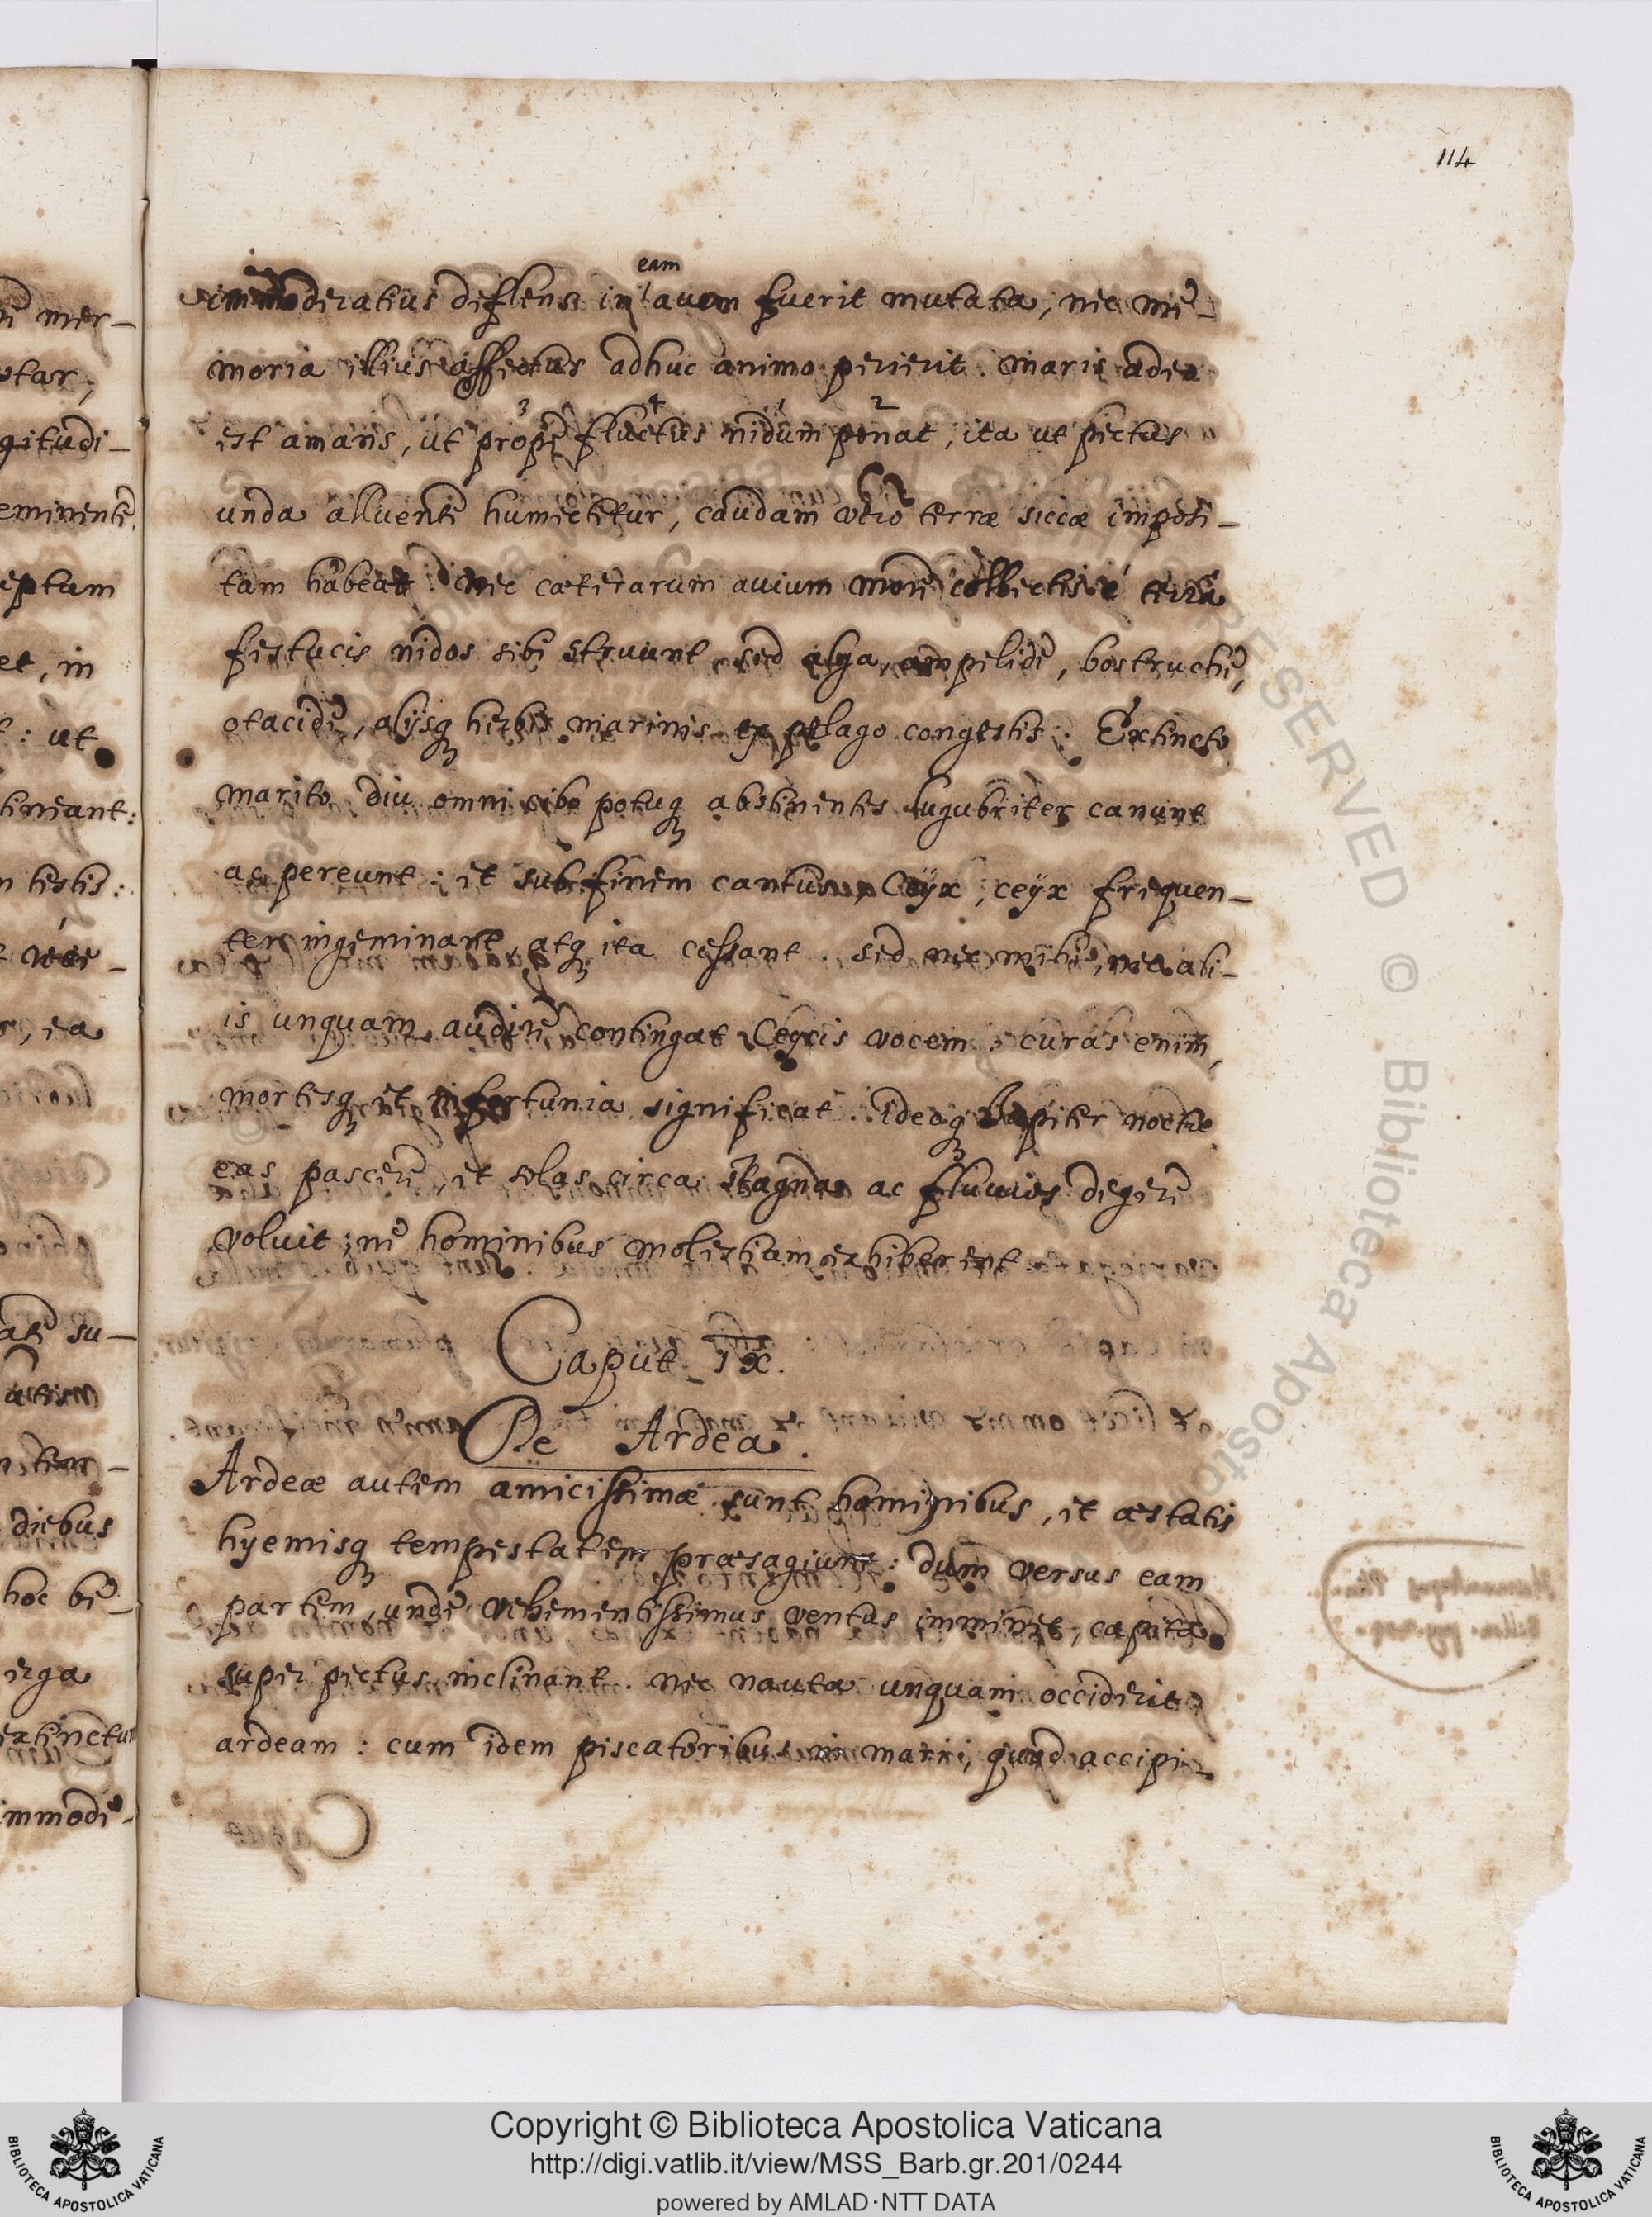 114
eam
immoderatius deflens in avem fuerit mutata, nec me-
moria illius affectus adhuc animo perierit. Maris adeo
3 4 1 2
est amans, ut prope fluctus nidum ponat, ita ut pectus
unda alluente humectetur, caudam vero terræ siccæ imposi-
tam habeat. Nec cæterarum avium more collectis è terra
festucis nidos sibi struunt, sed alga, ampelide, bostruche,
otacide, alijsq herbis marinis ex pelago congestis. Extincto
marito diu omni cibo potuq abstinentes lugubriter canunt
ac pereunt: et sub finem cantum, Ceÿx, ceÿx frequen-
ter ingeminant, atq ita cessant. Sed nec mihi, nec ali-
is unquam audire contingat Ceycis vocem: curas enim,
mortesq et infortunia significat. ideoq Iupiter noctu
eas pascere, et solas circa stagna ac fluuios degere
voluit; ne hominibus molestiam exhiberent
Caput IX.
De Ardea.
Ardeæ autem amicissimæ sunt hominibus, et æstatis
hyemisq tempestatem præsagiunt: dum versus eam
partem, unde vehementissimus ventus imminet, capita
super pectus inclinant. Nec nauta unquam occiderit
ardeam: cum idem piscatoribus in mari, quod accipi-
mer-
gitudi-
eminente
eptum
et, in
: ut
tineant:
testis:
ea
su-
diebus
hoc be-
erga
extinctum
immode-
© Biblioteca Apostolica Vaticana
Copyright © Biblioteca Apostolica Vaticana
http://digi.vatlib.it/view/MSS_Barb.gr.201/0244
powered by AMLAD·NTT DATA
BIBLIOTECA APOSTOLICA VATICANA
BIBLIOTECA APOSTOLICA VATICANA